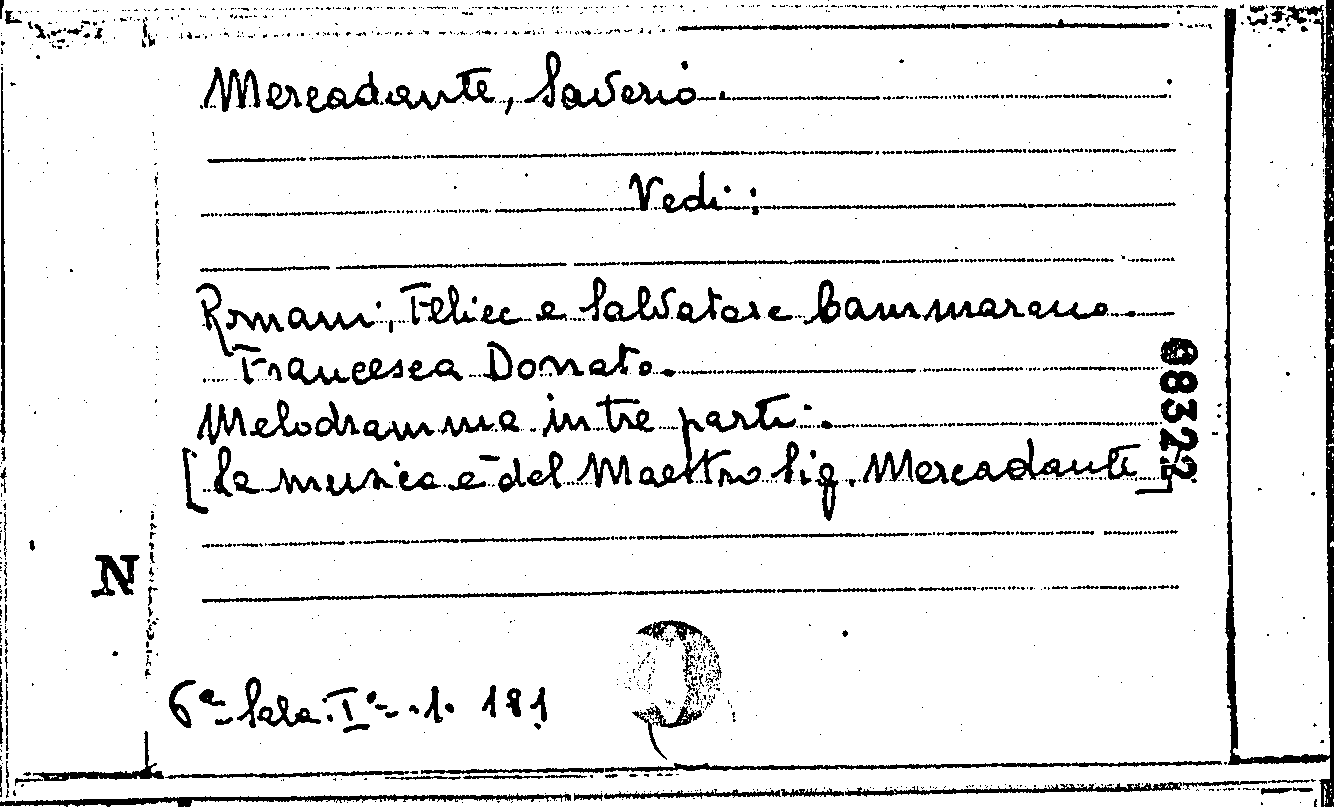 Mercadante, Saverio.
Vedi:
Romani, Felice e Salvatore Cammarano.
Francesca Donato.
Melodramma in tre parti.
[La musica è del Maestro Sig. Mercadante]
68322
N
6ª Sala. Iª. 1. 181